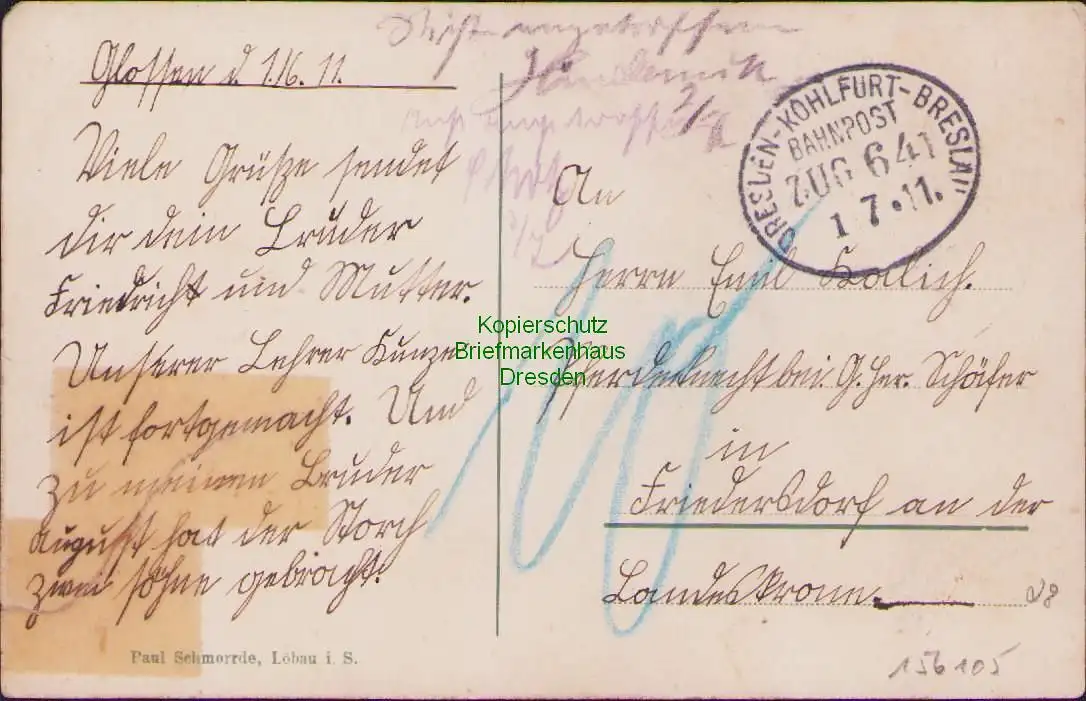 Glossen d. 1./6. 11.
Viele Grüße sendet
dir dein Bruder
Friedricht und Mutter.
Unserer Lehrer Kunze
ist fortgemacht. Und
zu meinen Bruder
Augusst hat der Storch
zwei söhne gebracht.
Paul Schmorrde, Löbau i. S.
Nicht angetroffen
2/7
DRESDEN-KOHLFURT-BRESLAU
BAHNPOST
ZUG 641
1 7.11.
An
Herrn Emil Kollich.
Pferdeknecht bei G. Her. Schäfer
in
Friedersdorf an der
Landeskrone.
10
Kopierschutz
Briefmarkenhaus
Dresden
28
156105